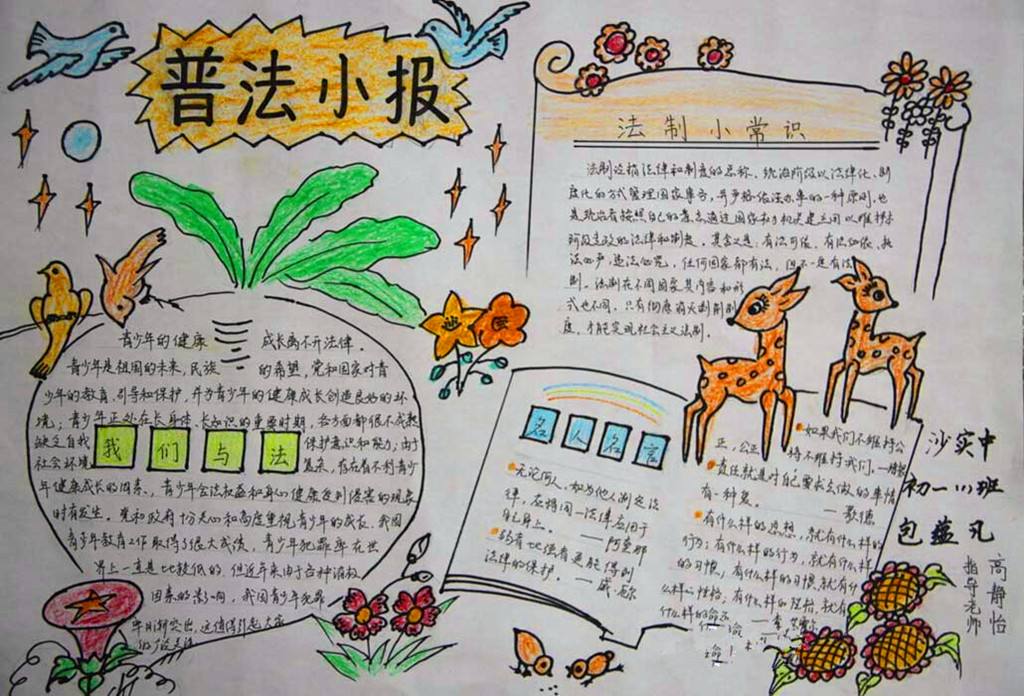 普法小报
法制小常识
法制是指法律和制度的总称。统治阶级以法律化、制
度化的方式管理国家事务，并严格依法办事的一种原则。也
是统治者按照自己的意志通过国家权力机关建立用以维护本
阶级专政的法律和制度，其含义是：有法可依，有法必依，执
法必严，违法必究，任何国家都有法，但不一定有法
制。法制在不同国家其内容和形
式也不同，只有彻底消灭剥削制
度，才能实现社会主义法制。
青少年的健康成长离不开法律。
青少年是祖国的未来，民族的希望，党和国家对青
少年的教育，引导和保护，并为青少年的健康成长创造良好的环
境；青少年正处在长身体、长知识的重要时期，各方面都很不成熟
缺乏自我保护意识和能力；由于
我们与法
社会环境复杂，存在有不利青少
年健康成长的因素，青少年合法权益和身心健康受到侵害的现象
时有发生。党和政府十分关心和高度重视青少年的成长，我国
青少年教育工作取得了很大成绩，青少年犯罪率在世
界上一直是比较低的，但近年来由于各种消极
因素的影响，我国青少年犯罪
率日渐突出，这值得引起大家
的广泛关注
名人名言
无论何人，如为他人制定法
律，应将同一法律应用于
自己身上。——阿奎那
弱者比强者更能得到
法律的保护。——威·厄尔
如果我们不维持公
正，公正将不维持我们。——培根
责任就是对自己要求去做的事情
有一种爱。
——歌德
有什么样的思想，就有什么样的
行为；有什么样的行为，就有什么样
的习惯；有什么样的习惯，就有什
么样的性格，有什么样的性格，就有
什么样的命运
沙实中
初一(1)班
包蕴凡
指导老师
高静怡